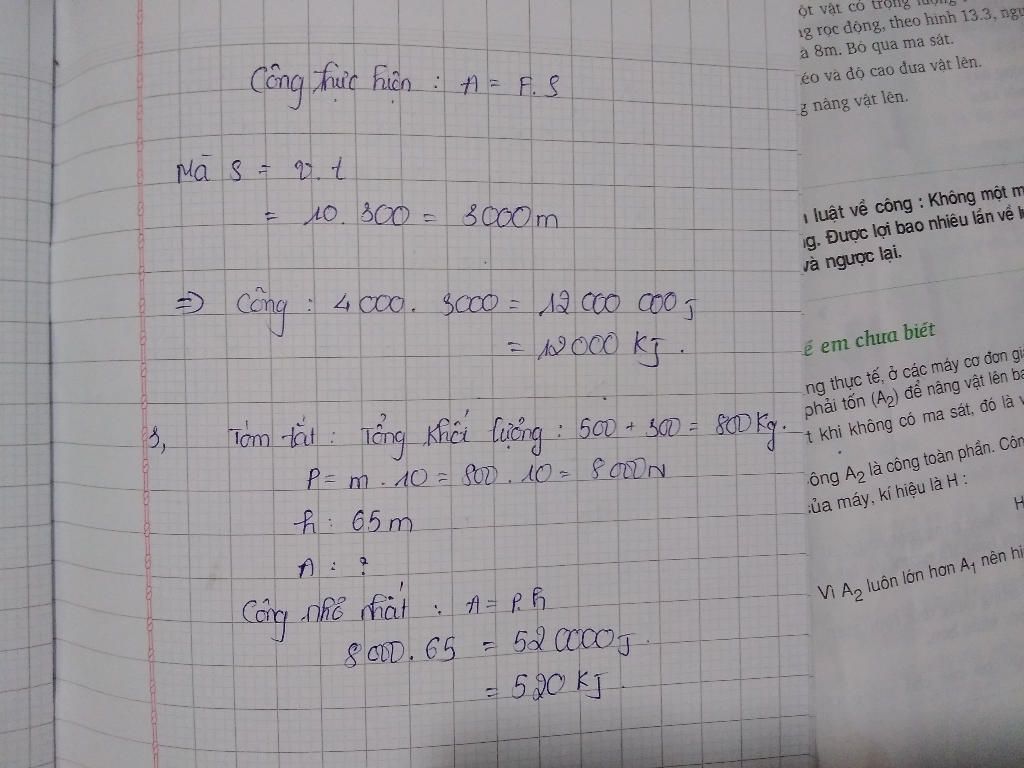 Công thực hiện : A = F.S
Mà S = v.t
= 10.300 = 3000m
=> Công : 4000. 3000 = 12 000 000 J
= 12000 KJ.
3, Tóm tắt : Tổng khối lượng : 500 + 300 = 800 Kg.
P = m . 10 = 800 . 10 = 8000N
h : 65m
A : ?
Công nhỏ nhất : A = P.h
8000.65 = 520000J.
= 520 KJ
ột vật có trọng lượng
ng rọc động, theo hình 13.3, ngư
à 8m. Bỏ qua ma sát.
éo và độ cao đưa vật lên.
g nâng vật lên.
luật về công : Không một m
g. Được lợi bao nhiêu lần về l
và ngược lại.
ể em chưa biết
ng thực tế, ở các máy cơ đơn gi
phải tốn (A2) để nâng vật lên ba
t khi không có ma sát, đó là
ông A2 là công toàn phần. Côn
ủa máy, kí hiệu là H :
H
Vì A2 luôn lớn hơn A1 nên hi